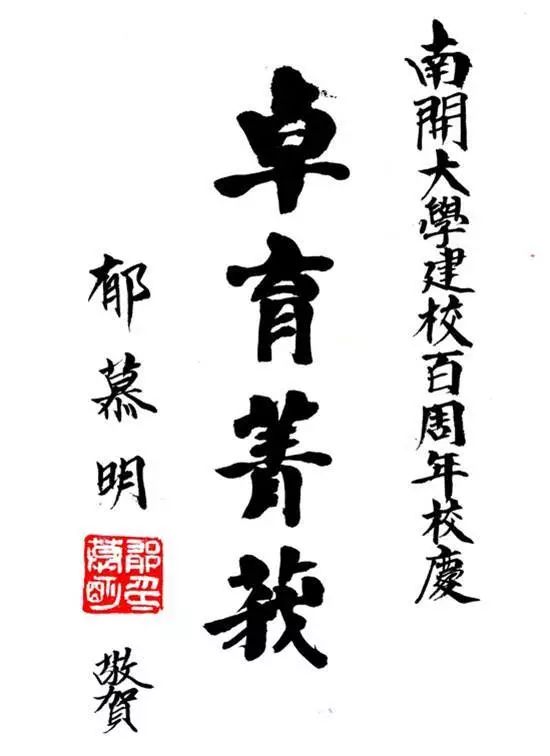 南開大學建校百周年校慶
卓育菁莪
郁慕明
敬賀